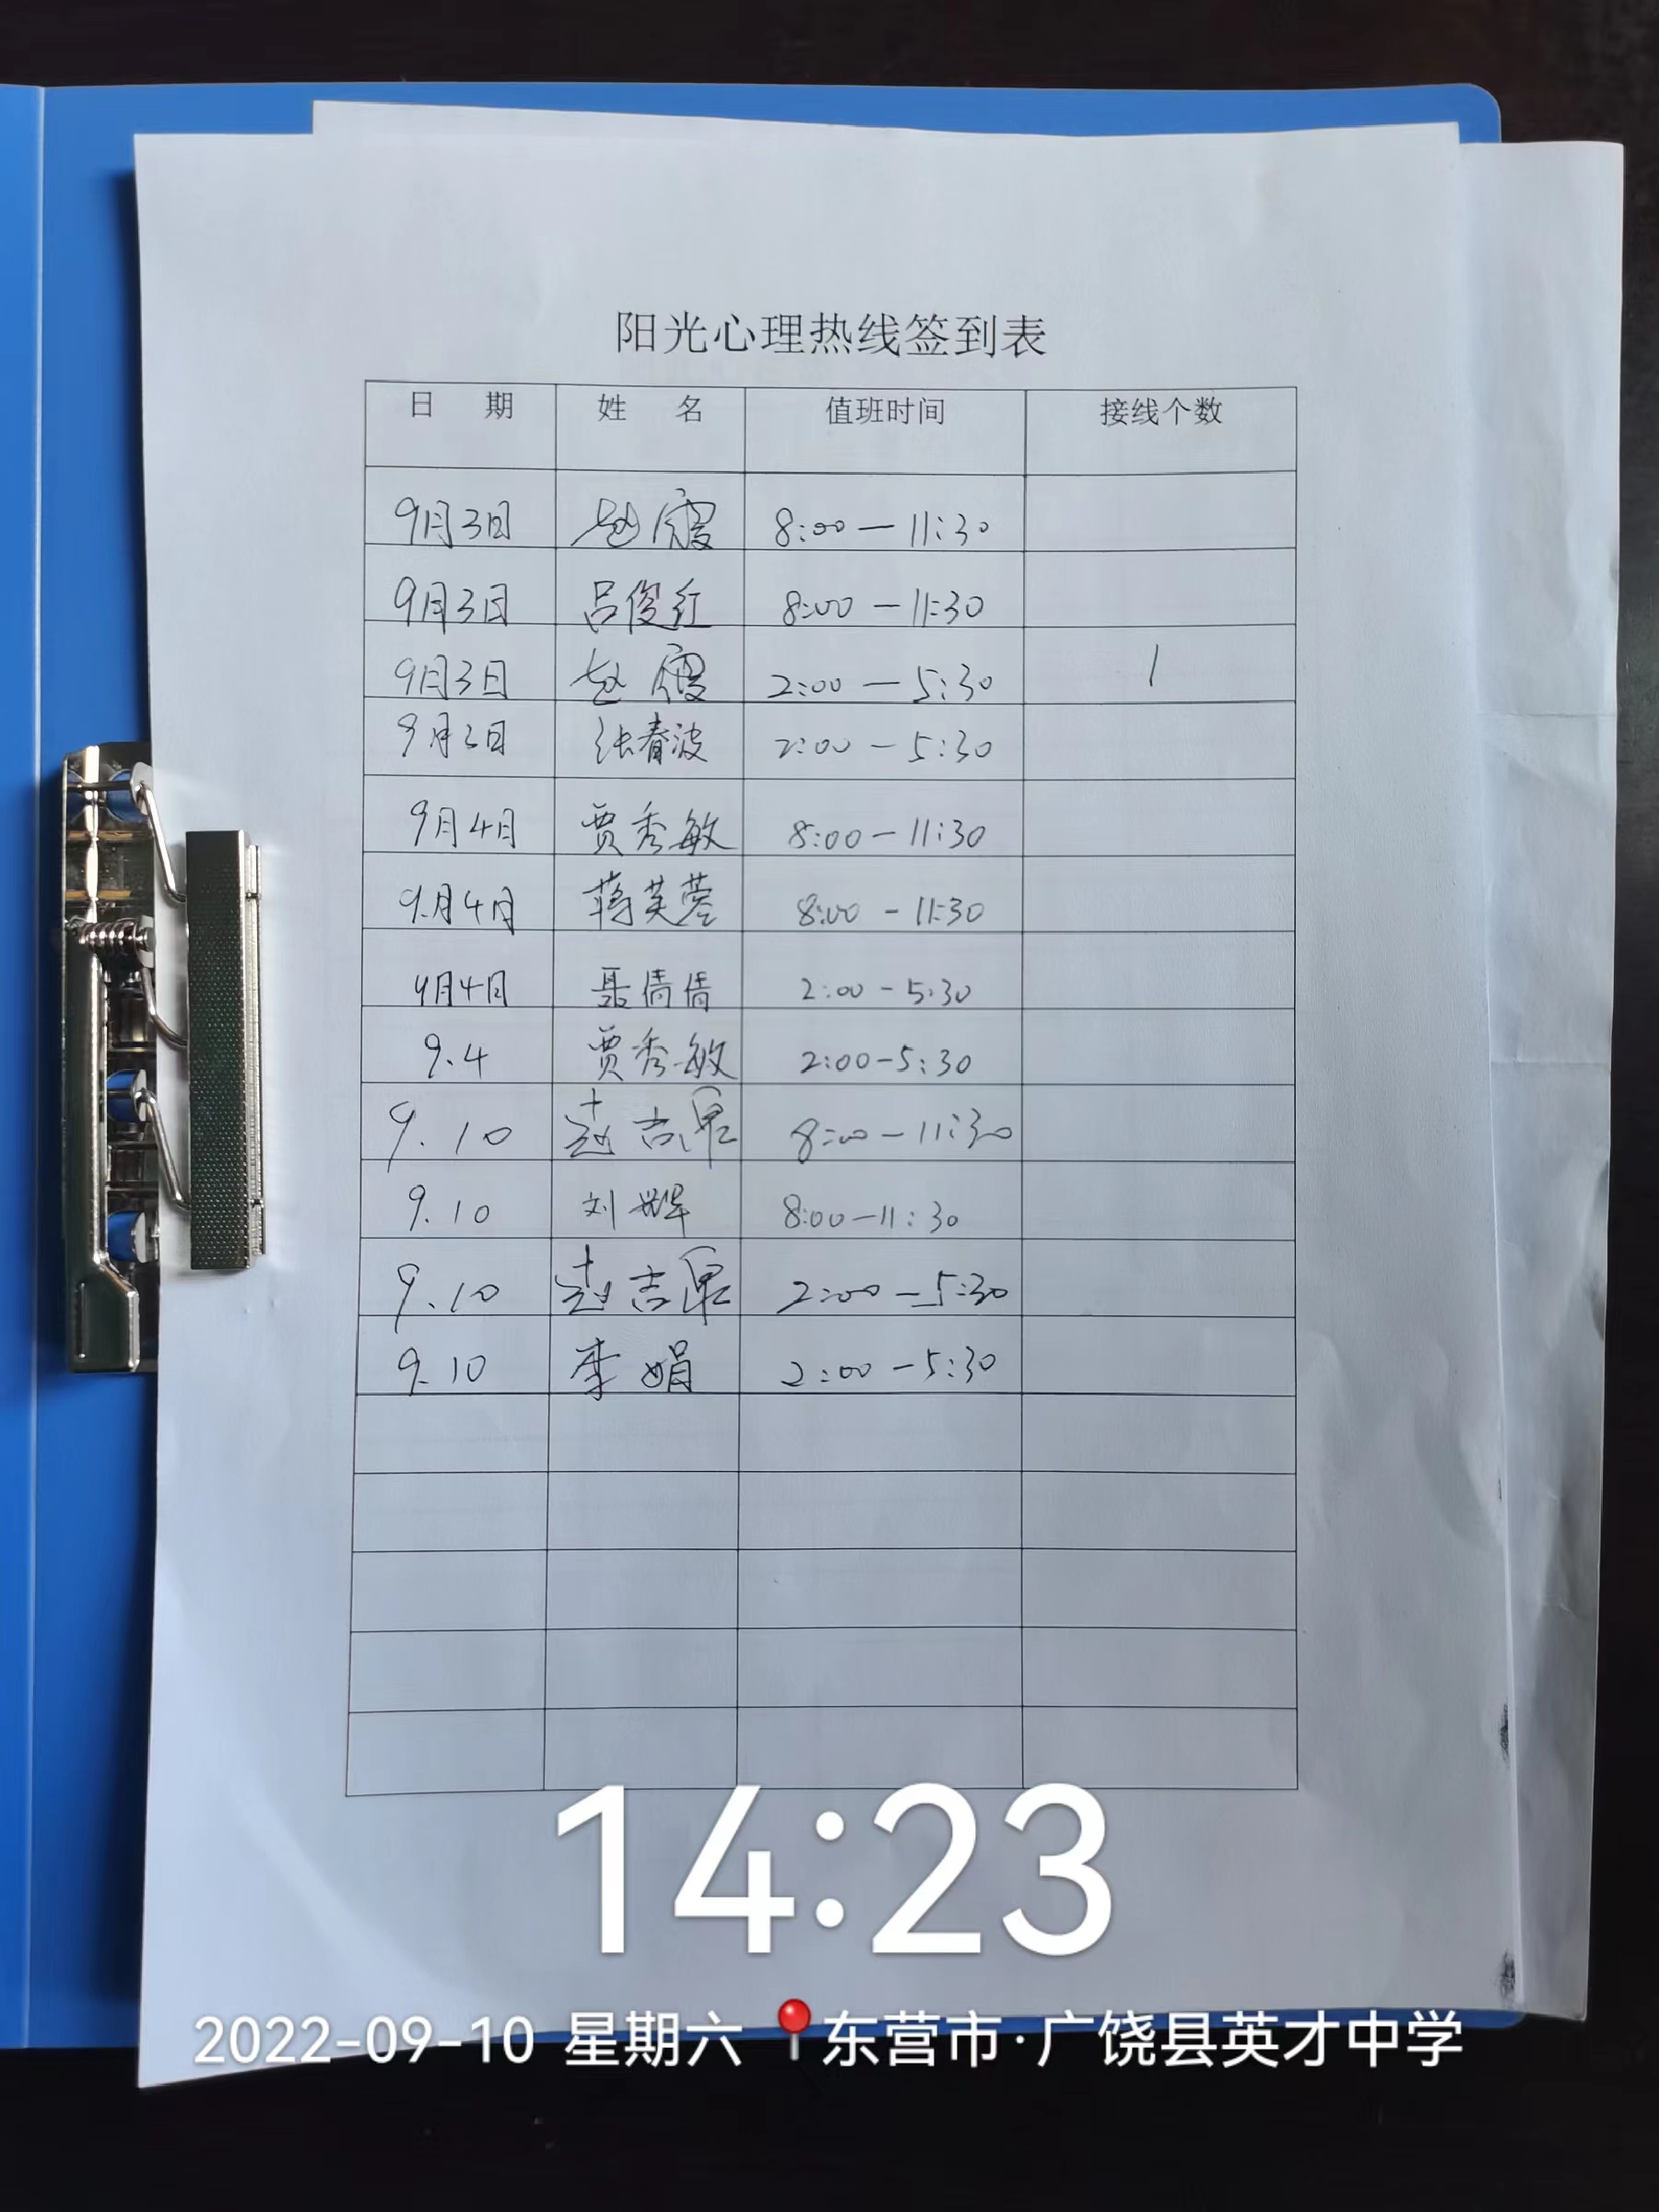 阳光心理热线签到表
日 期 姓 名 值班时间 接线个数
9月3日 赵霞 8:00—11:30
9月3日 吕俊红 8:00—11:30
9月3日 赵霞 2:00—5:30 1
9月3日 张春波 2:00—5:30
9月4日 贾秀敏 8:00—11:30
9月4日 蒋芙蓉 8:00—11:30
9月4日 聂倩倩 2:00—5:30
9.4 贾秀敏 2:00—5:30
9.10 赵吉 8:00—11:30
9.10 刘 8:00—11:30
9.10 赵吉 2:00—5:30
9.10 李娟 2:00—5:30
14:23
2022-09-10 星期六 东营市·广饶县英才中学